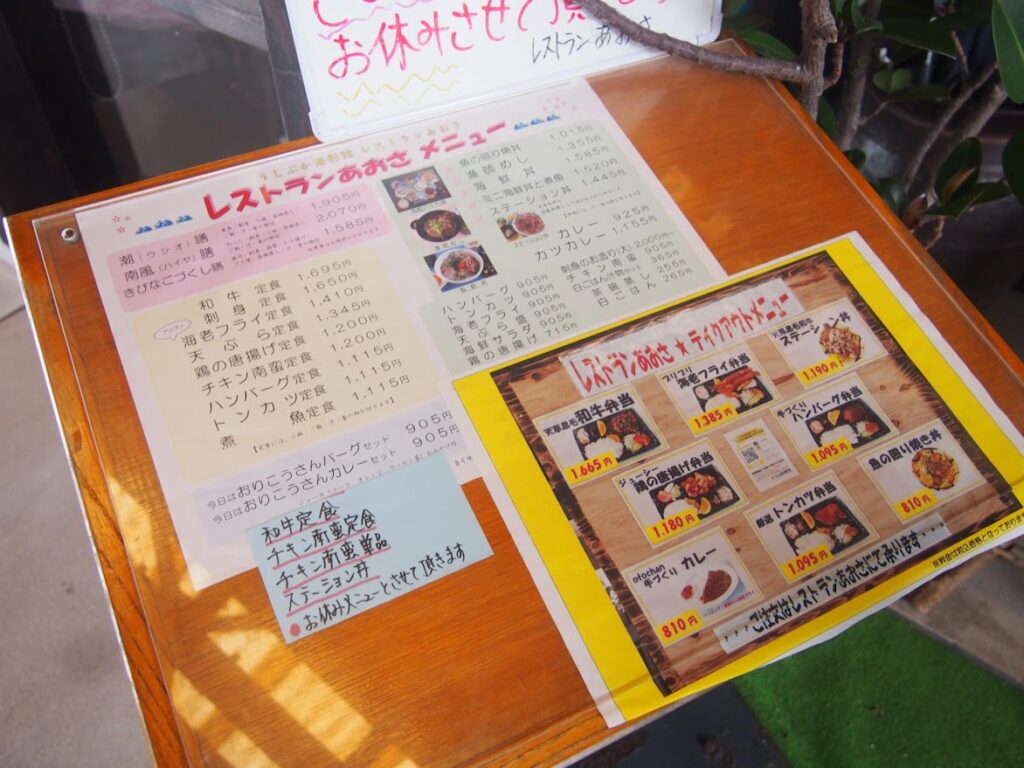 お休みさせて頂
レストランあおさ
うしぶか海彩館 レストランあおさ
レストランあおさ メニュー
潮(ウシオ)膳 1,905円
南風(ハイヤ)膳 2,070円
きびなごづくし膳 1,585円
和牛定食 1,695円
刺身定食 1,650円
プリプリ
海老フライ定食 1,410円
天ぷら定食 1,345円
鶏の唐揚げ定食 1,200円
チキン南蛮定食 1,200円
ハンバーグ定食 1,115円
トンカツ定食 1,115円
煮魚定食 1,115円
今日はおりこうさんバーグセット 905円
今日はおりこうさんカレーセット 905円
魚の照り焼丼 1,015円
漁師めし 1,355円
海鮮丼 1,585円
ミニ海鮮丼と煮魚 1,520円
ステーション丼 1,445円
カレー 925円
カツカレー 1,155円
ハンバーグ 905円
トンカツ 905円
海老フライ 905円
天ぷら盛 905円
海鮮サラダ 905円
鶏の唐揚げ 715円
刺身のお造り(大) 2,000円~
チキン南蛮 905円
白ごはん汁物セット 365円
茶碗蒸し 255円
白ごはん 265円
和牛定食
チキン南蛮定食
チキン南蛮単品
ステーション丼
●お休みメニューとさせて頂きます
レストランあおさ★テイクアウトメニュー
天草黒毛和牛弁当
1,665円
プリプリ
海老フライ弁当
1,385円
天草黒毛和牛
ステーション丼
1,190円
ジューシー
鶏の唐揚げ弁当
1,180円
手づくり
ハンバーグ弁当
1,095円
otochan
手づくり カレー
810円
厳選 トンカツ弁当
1,095円
魚の照り焼き丼
810円
・・・ご注文はレストランあおさにて承ります・・・
※料金は税込価格となっております